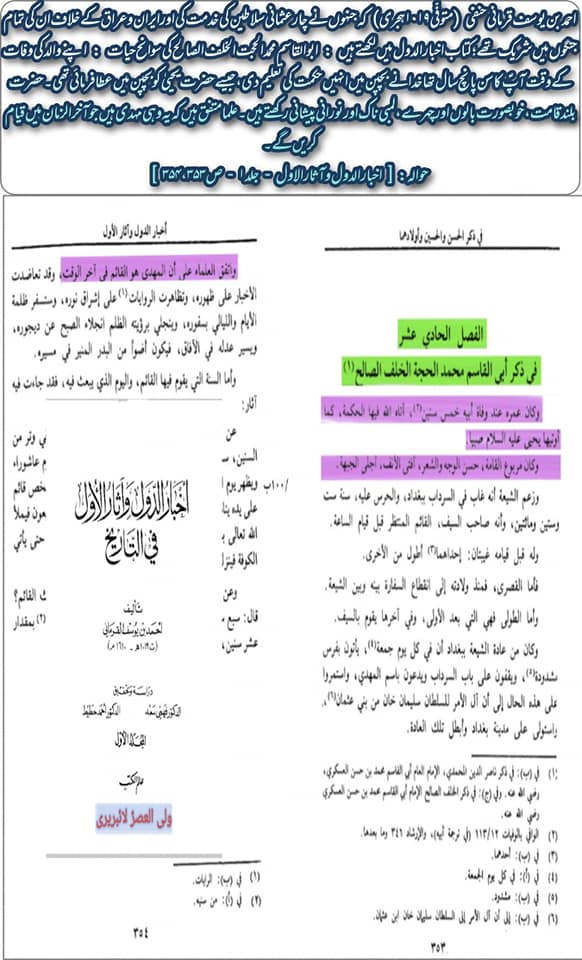 احمد بن یوسف قرمانی حنفی (متوفیٰ ۱۰۱۹ ہجری) کہ جنہوں نے چار عثمانی سلاطین کی خدمت کی اور ایران و عراق کے خلاف ان کی تمام
جنگوں میں شریک تھے؛ کتاب اخبار الدول میں لکھتے ہیں : ابو القاسم محمد الحجت الخلف الصالح کی سوانح حیات : اپنے والد کی وفات
کے وقت آپؑ کا سن پانچ سال تھا خدا نے بچپن میں انہیں حکمت کی تعلیم دی، جیسے حضرت یحییٰ کو بچپن میں عطا فرمائی تھی۔ حضرت
بلند قامت، خوبصورت بالوں اور چہرے، لمبی ناک اور نورانی پیشانی رکھتے ہیں۔ علما متفق ہیں کہ یہ وہی مہدی ہیں جو آخر الزمان میں قیام
کریں گے۔
حوالہ : [ اخبار الدول و آثار الاول - جلد ۱ - ص ۳۵۴،۳۵۳ ]
في ذكر الحسن والحسين وأولادهما
الفصل الحادي عشر
في ذكر أبي القاسم محمد الحجة الخلف الصالح (١)
وكان عمره عند وفاة أبيه خمس سنين(٢)، أتاه الله فيها الحكمة، كما
أوتيها يحيى عليه السلام صبيا.
وكان مربوع القامة، حسن الوجه والشعر، أقنى الأنف، أجلى الجبهة.
وزعم الشيعة أنه غاب في السرداب ببغداد، والحرس عليه، سنة ست
وستين ومائتين، وأنه صاحب السيف، القائم المنتظر قبل قيام الساعة.
وله قبل قيامه غيبتان: إحداهما(٣) أطول من الأخرى.
فأما القصرى، فمنذ ولادته إلى انقطاع السفارة بينه وبين الشيعة.
وأما الطولى فهي التي بعد الأولى، وفي آخرها يقوم بالسيف.
وكان من عادة الشيعة ببغداد أن في كل يوم جمعة(٤)، يأتون بفرس
مشدودة(٥)، ويقفون على باب السرداب ويدعون باسم المهدي، واستمروا
على هذه الحال إلى أن آل الأمر للسلطان سليمان خان من بني عثمان(٦)،
واستولى على مدينة بغداد وأبطل تلك العادة.
(١) في (ب): في ذكر ناصر الدين المحمدي، الإمام العام أبي القاسم محمد بن حسن العسكري،
رضي الله عنه. وفي (ج): في ذكر الخلف الصالح الإمام أبي القاسم محمد بن حسن العسكري
رضي الله عنه.
(٢) الوافي بالوفيات ١١٣/١٢ (في ترجمة أبيه)، والإرشاد ٣٤٦ وما بعدها.
(٣) في (ب): أحدهما.
(٤) في (أ): في كل يوم الجمعة.
(٥) في (ب): مشدود.
(٦) في (ب): إلى أن آل الأمر إلى السلطان سليمان خان ابن عثمان.
٣٥٣
أخبار الدول وآثار الأول
واتفق العلماء على أن المهدي هو القائم في آخر الوقت، وقد تعاضدت
الأخبار على ظهوره، وتظاهرت الروايات(١) على إشراق نوره، وستسفر ظلمة
الأيام والليالي بسفوره، وينجلي برؤيته الظلم انجلاء الصبح عن ديجوره،
ويسير عدله في الآفاق، فيكون أضوأ من البدر المنير في مسيره.
وأما السنة التي يقوم فيها القائم، واليوم الذي يبعث فيه، فقد جاءت فيه
آثار:
عن
ني وتر من
السنين،
م عاشوراء
١٠٠/ب
ويظهر يوم ا
خص قائم
على يده ينا
هون فيملأ
الله تعالى ب
حتى يأتي
الكوفة فينزل
وعن
ث القائم؟
قال: سبع س
(٢) بمقدار
عشر سنين،
أخبار الدول وآثار الأول
في التاريخ
تأليف
أحمد بن يوسف القرماني
(ت ١٠١٩هـ - ١٦١٠م)
دراسة وتحقيق
الدكتور فهمي سعد الدكتور أحمد حطيط
المجلد الأول
عالم الكتب
ولی العصرؑ لائبریری
(١) في (ب): الرايات.
(٢) في (أ): من سنيه.
٣٥٤